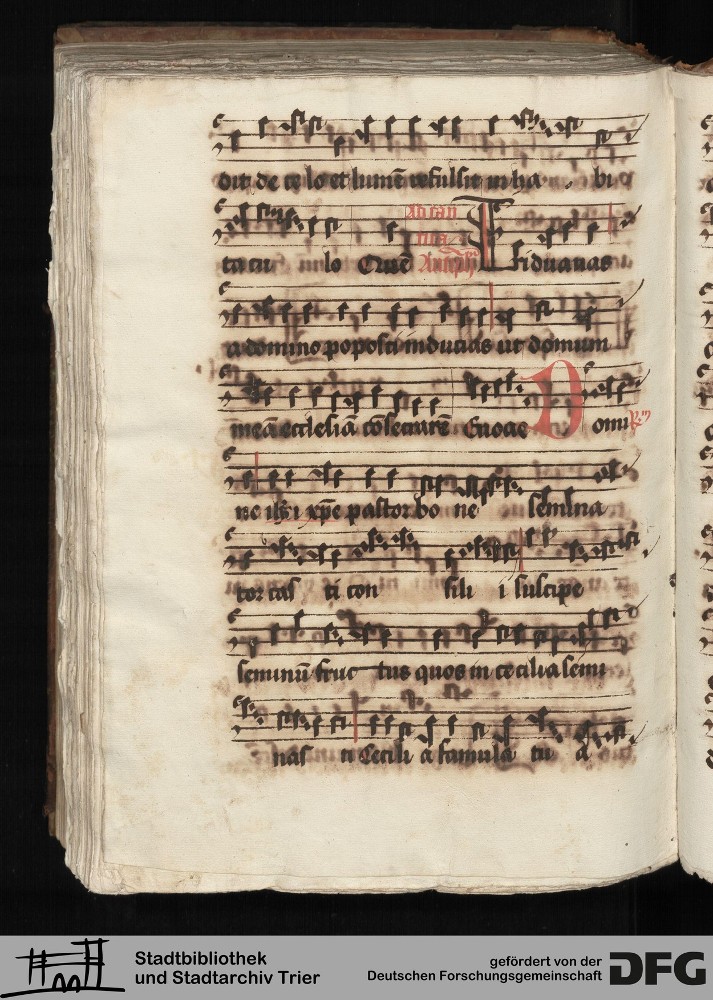 dit de celo et lumē refulsit in ha bi
tacu lo Euoē Ad can tica Antiph Triduanas
a domino poposci inducias ut domum
meā ecclesiā cōsecrarē Euoae Domi
ne ihū xp̄e pastor bo ne semina
tor cas ti con sili i suscipe
seminū fruc tus quos in cecilia semi
nas ti Cecili a famula tu a
Stadtbibliothek
und Stadtarchiv Trier
gefördert von der
Deutschen Forschungsgemeinschaft DFG